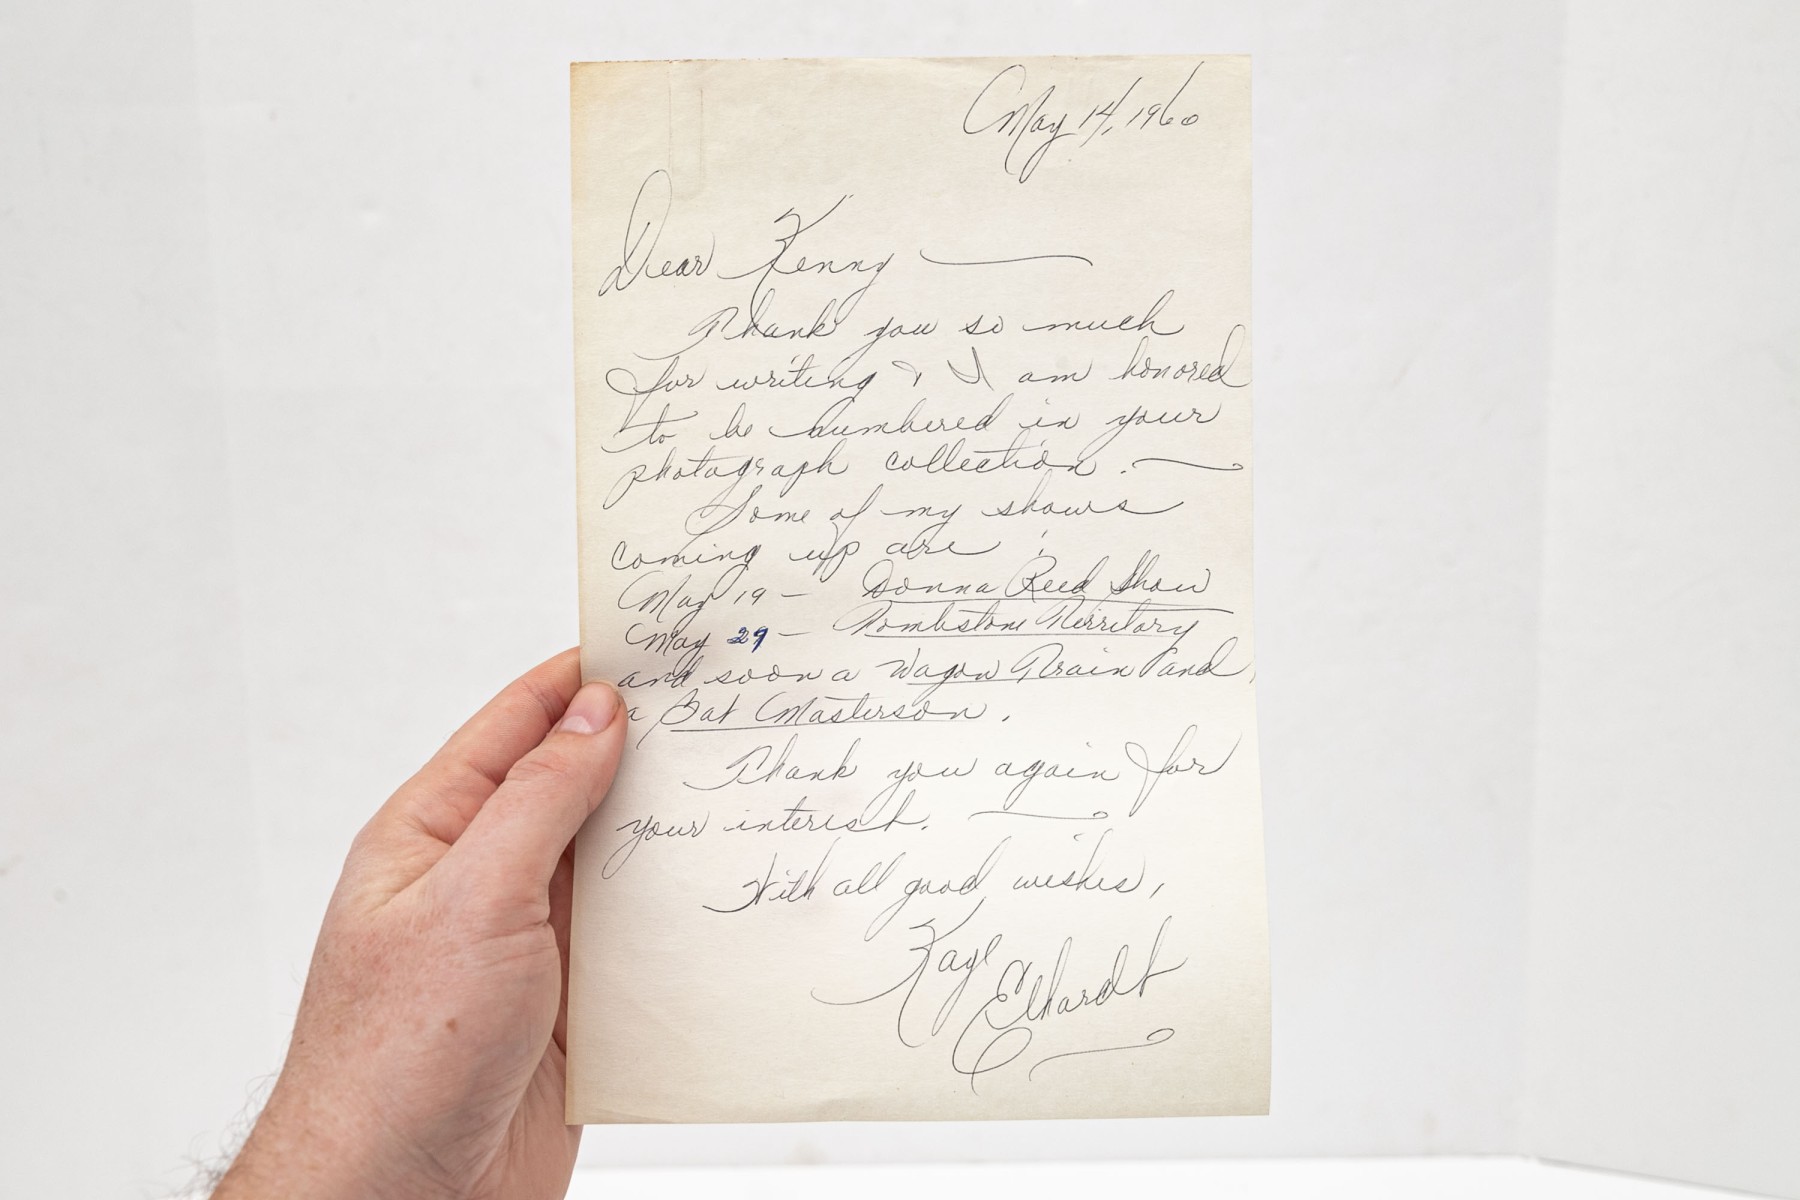 May 14, 1960
Dear Kenny —
Thank you so much
for writing & I am honored
to be numbered in your
photograph collection. —
Some of my shows
coming up are:
May 19 - Donna Reed Show
May 29 - Tombstone Territory
and soon a Wagon Train and
a Bat Masterson.
Thank you again for
your interest. —
With all good wishes,
Kaye
Elhardt